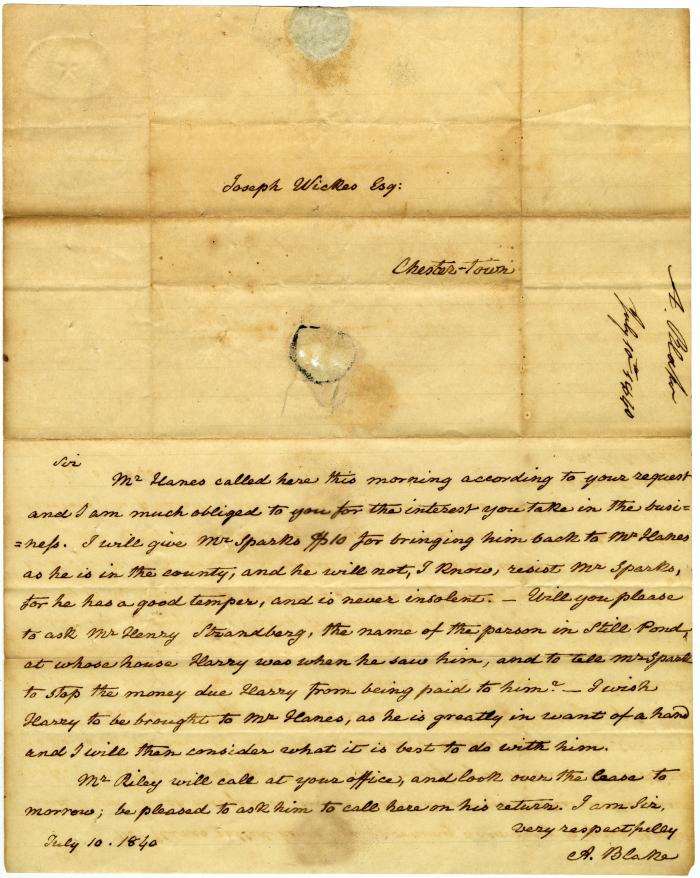 Joseph Wickes Esq:
Chester-Town
A. Blake
July 10th 1840
Sir
Mr Hanes called here this morning according to your request
and I am much obliged to you for the interest you take in the busi=
=ness. I will give Mr Sparks $10 for bringing him back to Mr Hanes
as he is in the county, and he will not, I know, resist Mr Sparks,
for he has a good temper, and is never insolent. — Will you please
to ask Mr Henry Strandberg, the name of the person in Still Pond,
at whose house Harry was when he saw him, and to tell Mr Spark
to stop the money due Harry from being paid to him? — I wish
Harry to be brought to Mr Hanes, as he is greatly in want of a hand
and I will then consider what it is best to do with him.
Mr Riley will call at your office, and look over the lease to
morrow; be pleased to ask him to call here on his return. I am Sir,
very respectfully
July 10. 1840
A. Blake